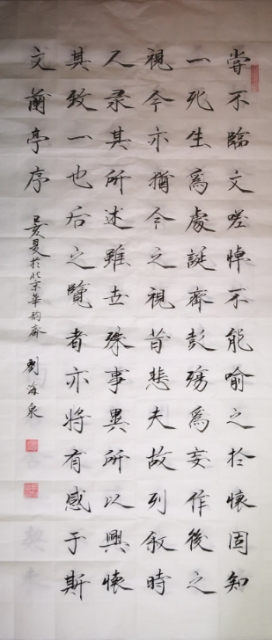 嘗不臨文嗟悼不能喻之於懷固知
一死生為虛誕齊彭殤為妄作後之
視今亦猶今之視昔悲夫故列叙時
人录其所述雖世殊事異所以興懷
其致一也后之覽者亦將有感于斯
文蘭亭序 己亥夏於北京華韵齋 劉